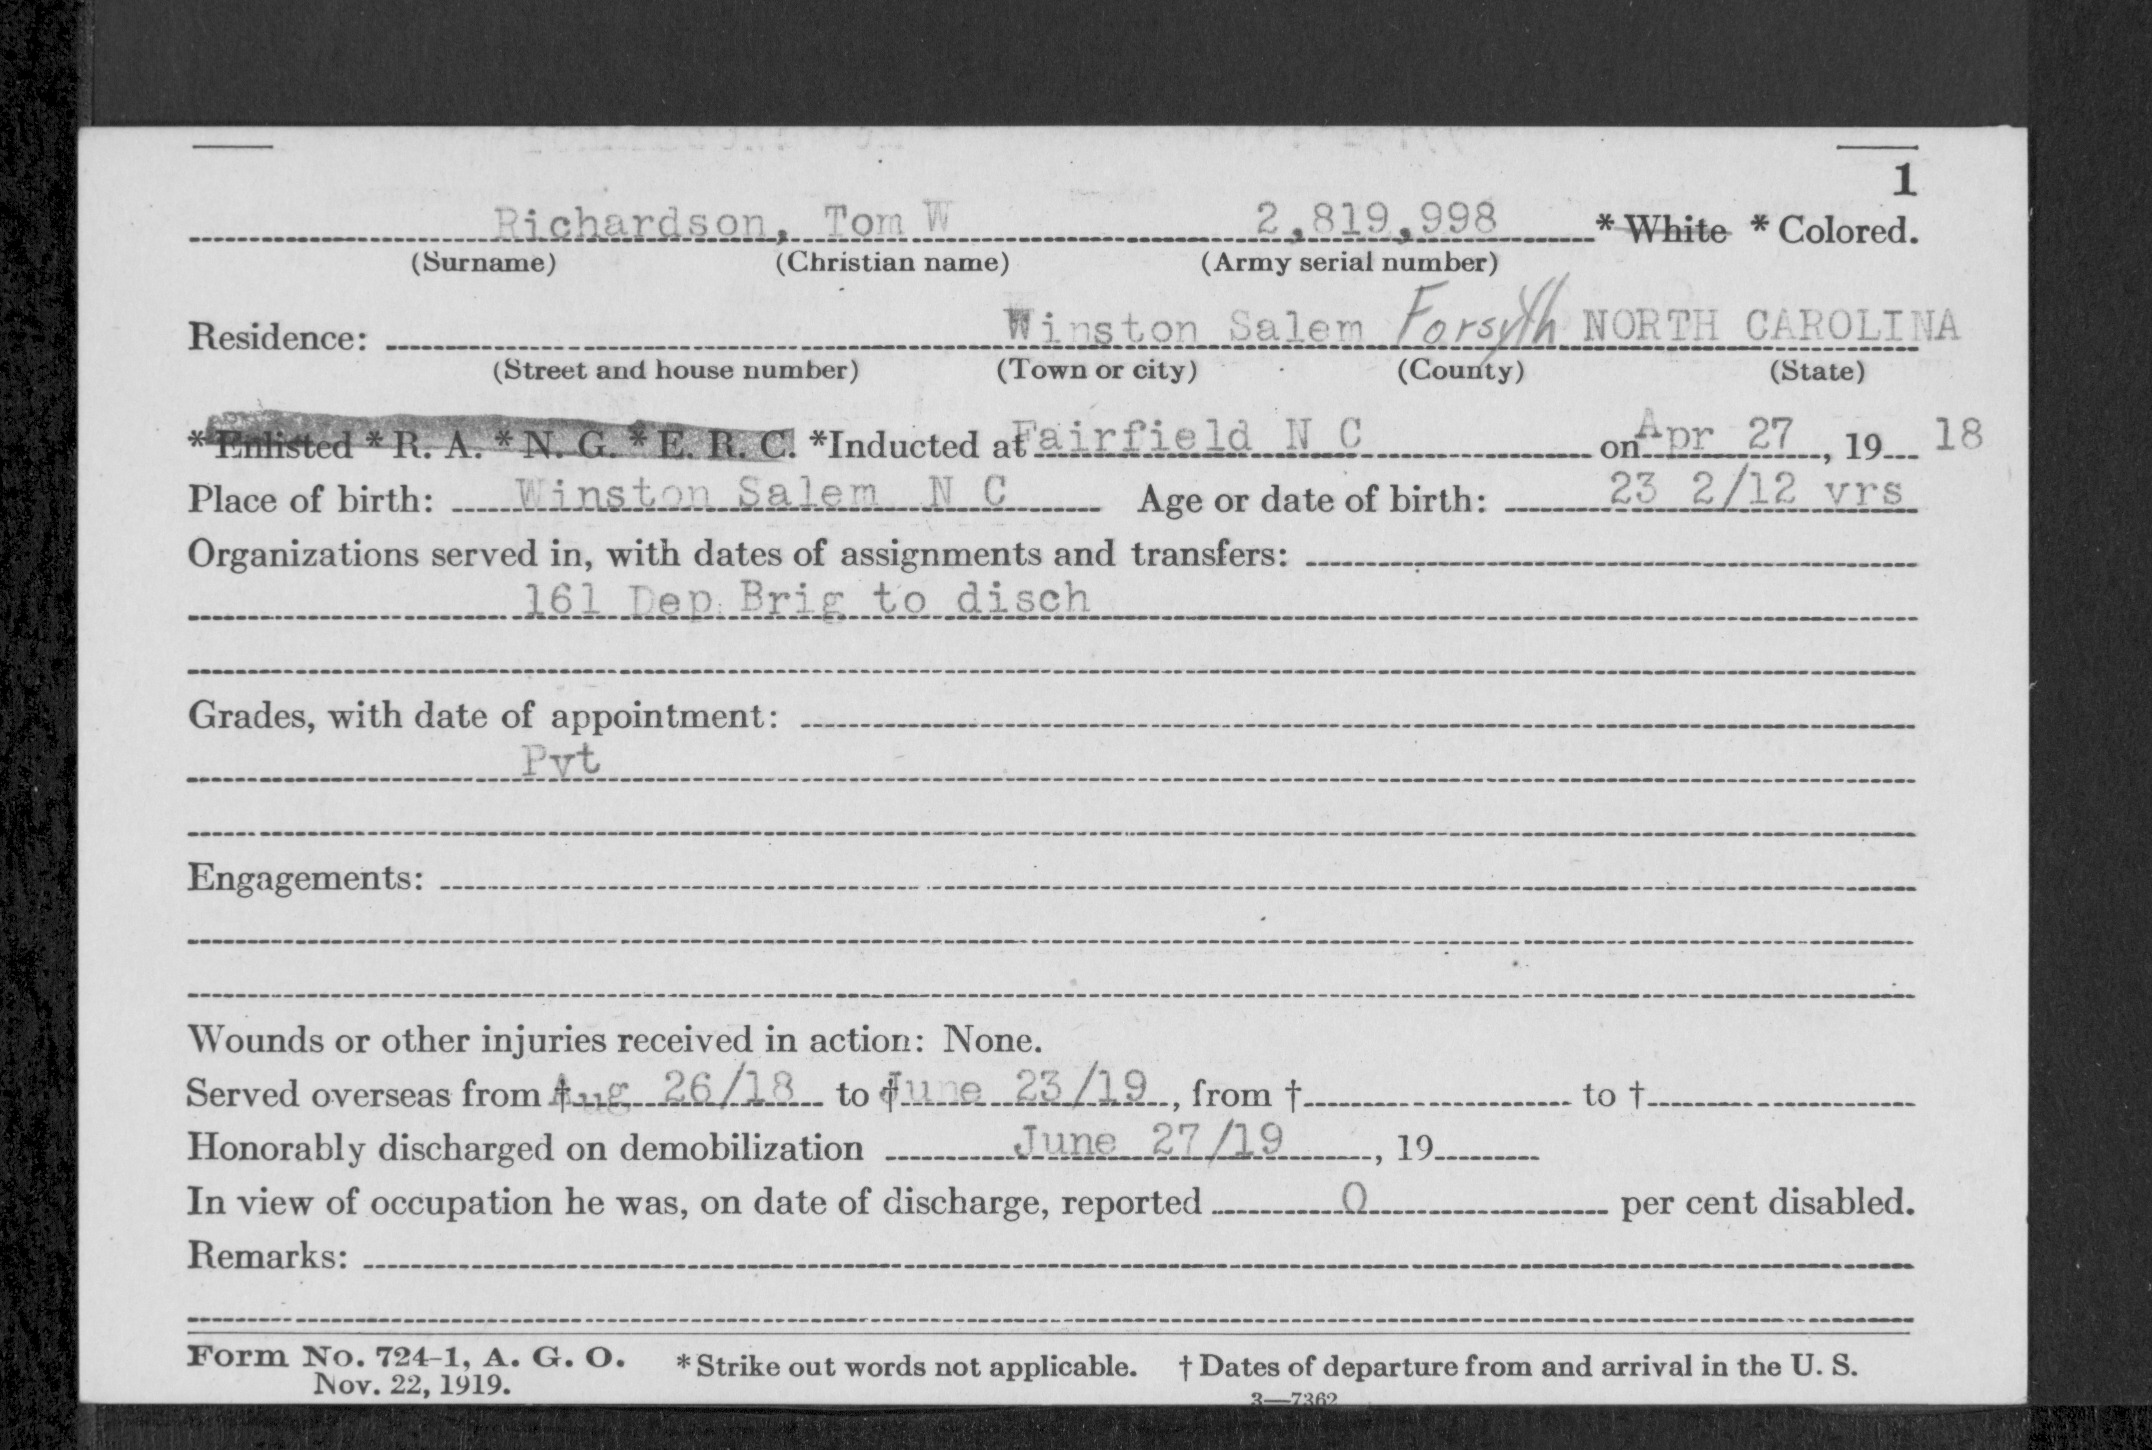 1
Richardson, Tom W 2,819,998 * White * Colored.
(Surname) (Christian name) (Army serial number)
Residence: Winston Salem Forsyth NORTH CAROLINA
(Street and house number) (Town or city) (County) (State)
* Enlisted * R. A. * N. G. * E. R. C. *Inducted at Fairfield N C on Apr 27, 19 18
Place of birth: Winston Salem N C Age or date of birth: 23 2/12 yrs
Organizations served in, with dates of assignments and transfers:
161 Dep Brig to disch
Grades, with date of appointment:
Pvt
Engagements:
Wounds or other injuries received in action: None.
Served overseas from † Aug 26/18 to † June 23/19, from † to †
Honorably discharged on demobilization June 27/19, 19
In view of occupation he was, on date of discharge, reported 0 per cent disabled.
Remarks:
Form No. 724-1, A. G. O. * Strike out words not applicable. † Dates of departure from and arrival in the U. S.
Nov. 22, 1919.
3—7362